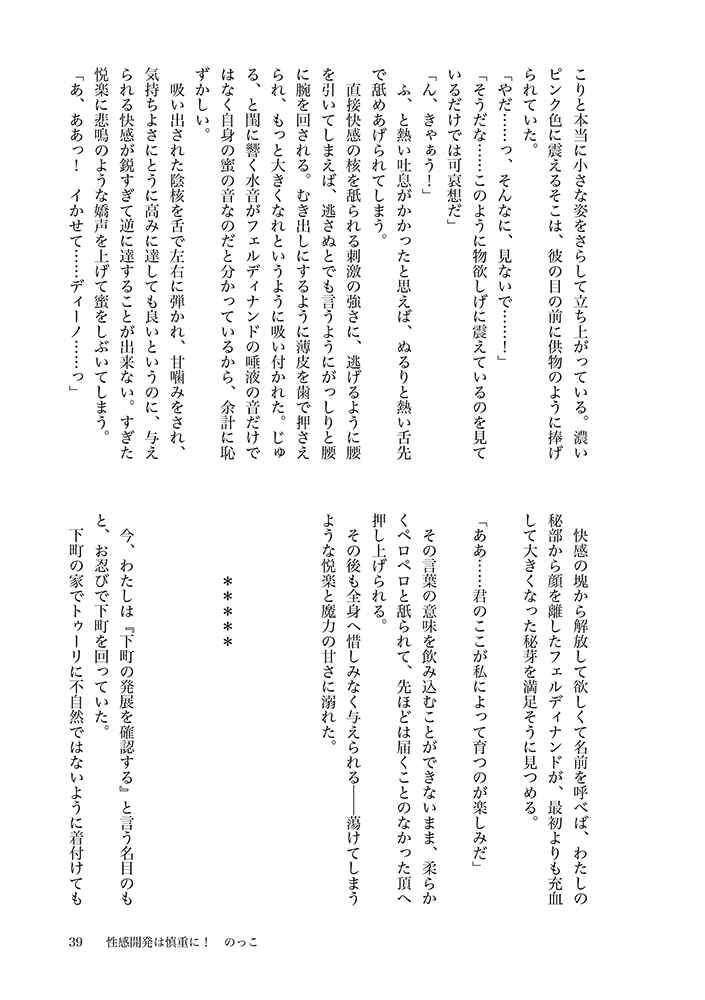 こりと本当に小さな姿をさらして立ち上がっている。濃い
ピンク色に震えるそこは、彼の目の前に供物のように捧げ
られていた。
「やだ……っ、そんなに、見ないで……！」
「そうだな……このように物欲しげに震えているのを見て
いるだけでは可哀想だ」
「ん、きゃぁう！」
ふ、と熱い吐息がかかったと思えば、ぬるりと熱い舌先
で舐めあげられてしまう。
直接快感の核を舐られる刺激の強さに、逃げるように腰
を引いてしまえば、逃さぬとでも言うようにがっしりと腰
に腕を回される。むき出しにするように薄皮を歯で押さえ
られ、もっと大きくなれというように吸い付かれた。じゅ
る、と閨に響く水音がフェルディナンドの唾液の音だけで
はなく自身の蜜の音なのだと分かっているから、余計に恥
ずかしい。
吸い出された陰核を舌で左右に弾かれ、甘噛みをされ、
気持ちよさにとうに高みに達しても良いというのに、与え
られる快感が鋭すぎて逆に達することが出来ない。すぎた
悦楽に悲鳴のような嬌声を上げて蜜をしぶいてしまう。
「あ、ああっ！　イかせて……ディーノ……っ」
快感の塊から解放して欲しくて名前を呼べば、わたしの
秘部から顔を離したフェルディナンドが、最初よりも充血
して大きくなった秘芽を満足そうに見つめる。
「ああ……君のここが私によって育つのが楽しみだ」
その言葉の意味を飲み込むことができないまま、柔らか
くペロペロと舐られて、先ほどは届くことのなかった頂へ
押し上げられる。
その後も全身へ惜しみなく与えられる――蕩けてしまう
ような悦楽と魔力の甘さに溺れた。
＊＊＊＊＊
今、わたしは『下町の発展を確認する』と言う名目のも
と、お忍びで下町を回っていた。
下町の家でトゥーリに不自然ではないように着付けても
39　性感開発は慎重に！　のっこ